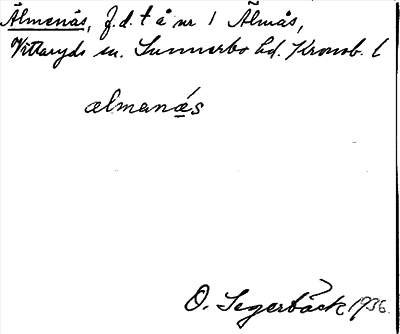 Älmenäs, f.d. t å nr 1 Älmås,
Vittaryds sn. Sunnerbo hd. Kronob. l
almanä́s
O. Segerbäck 1936.